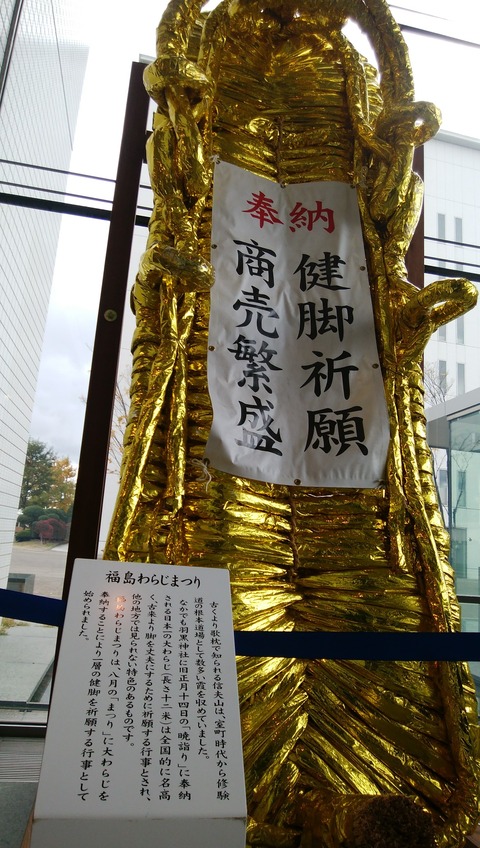 奉納
健脚祈願
商売繁盛
福島わらじまつり
古くより歌枕で知られる信夫山は、室町時代から修験
道の根本道場として数多い霞を収めていました。
なかでも羽黒神社に旧正月十四日の「暁詣り」に奉納
される日本一の大わらじ(長さ十二米)は全国的に名高
く、古来より脚を丈夫にするために祈願する行事とされ、
他の地方では見られない特色のあるものです。
わらじまつりは、八月の「まつり」に大わらじを
奉納することにより一層の健脚を祈願する行事として
始められました。